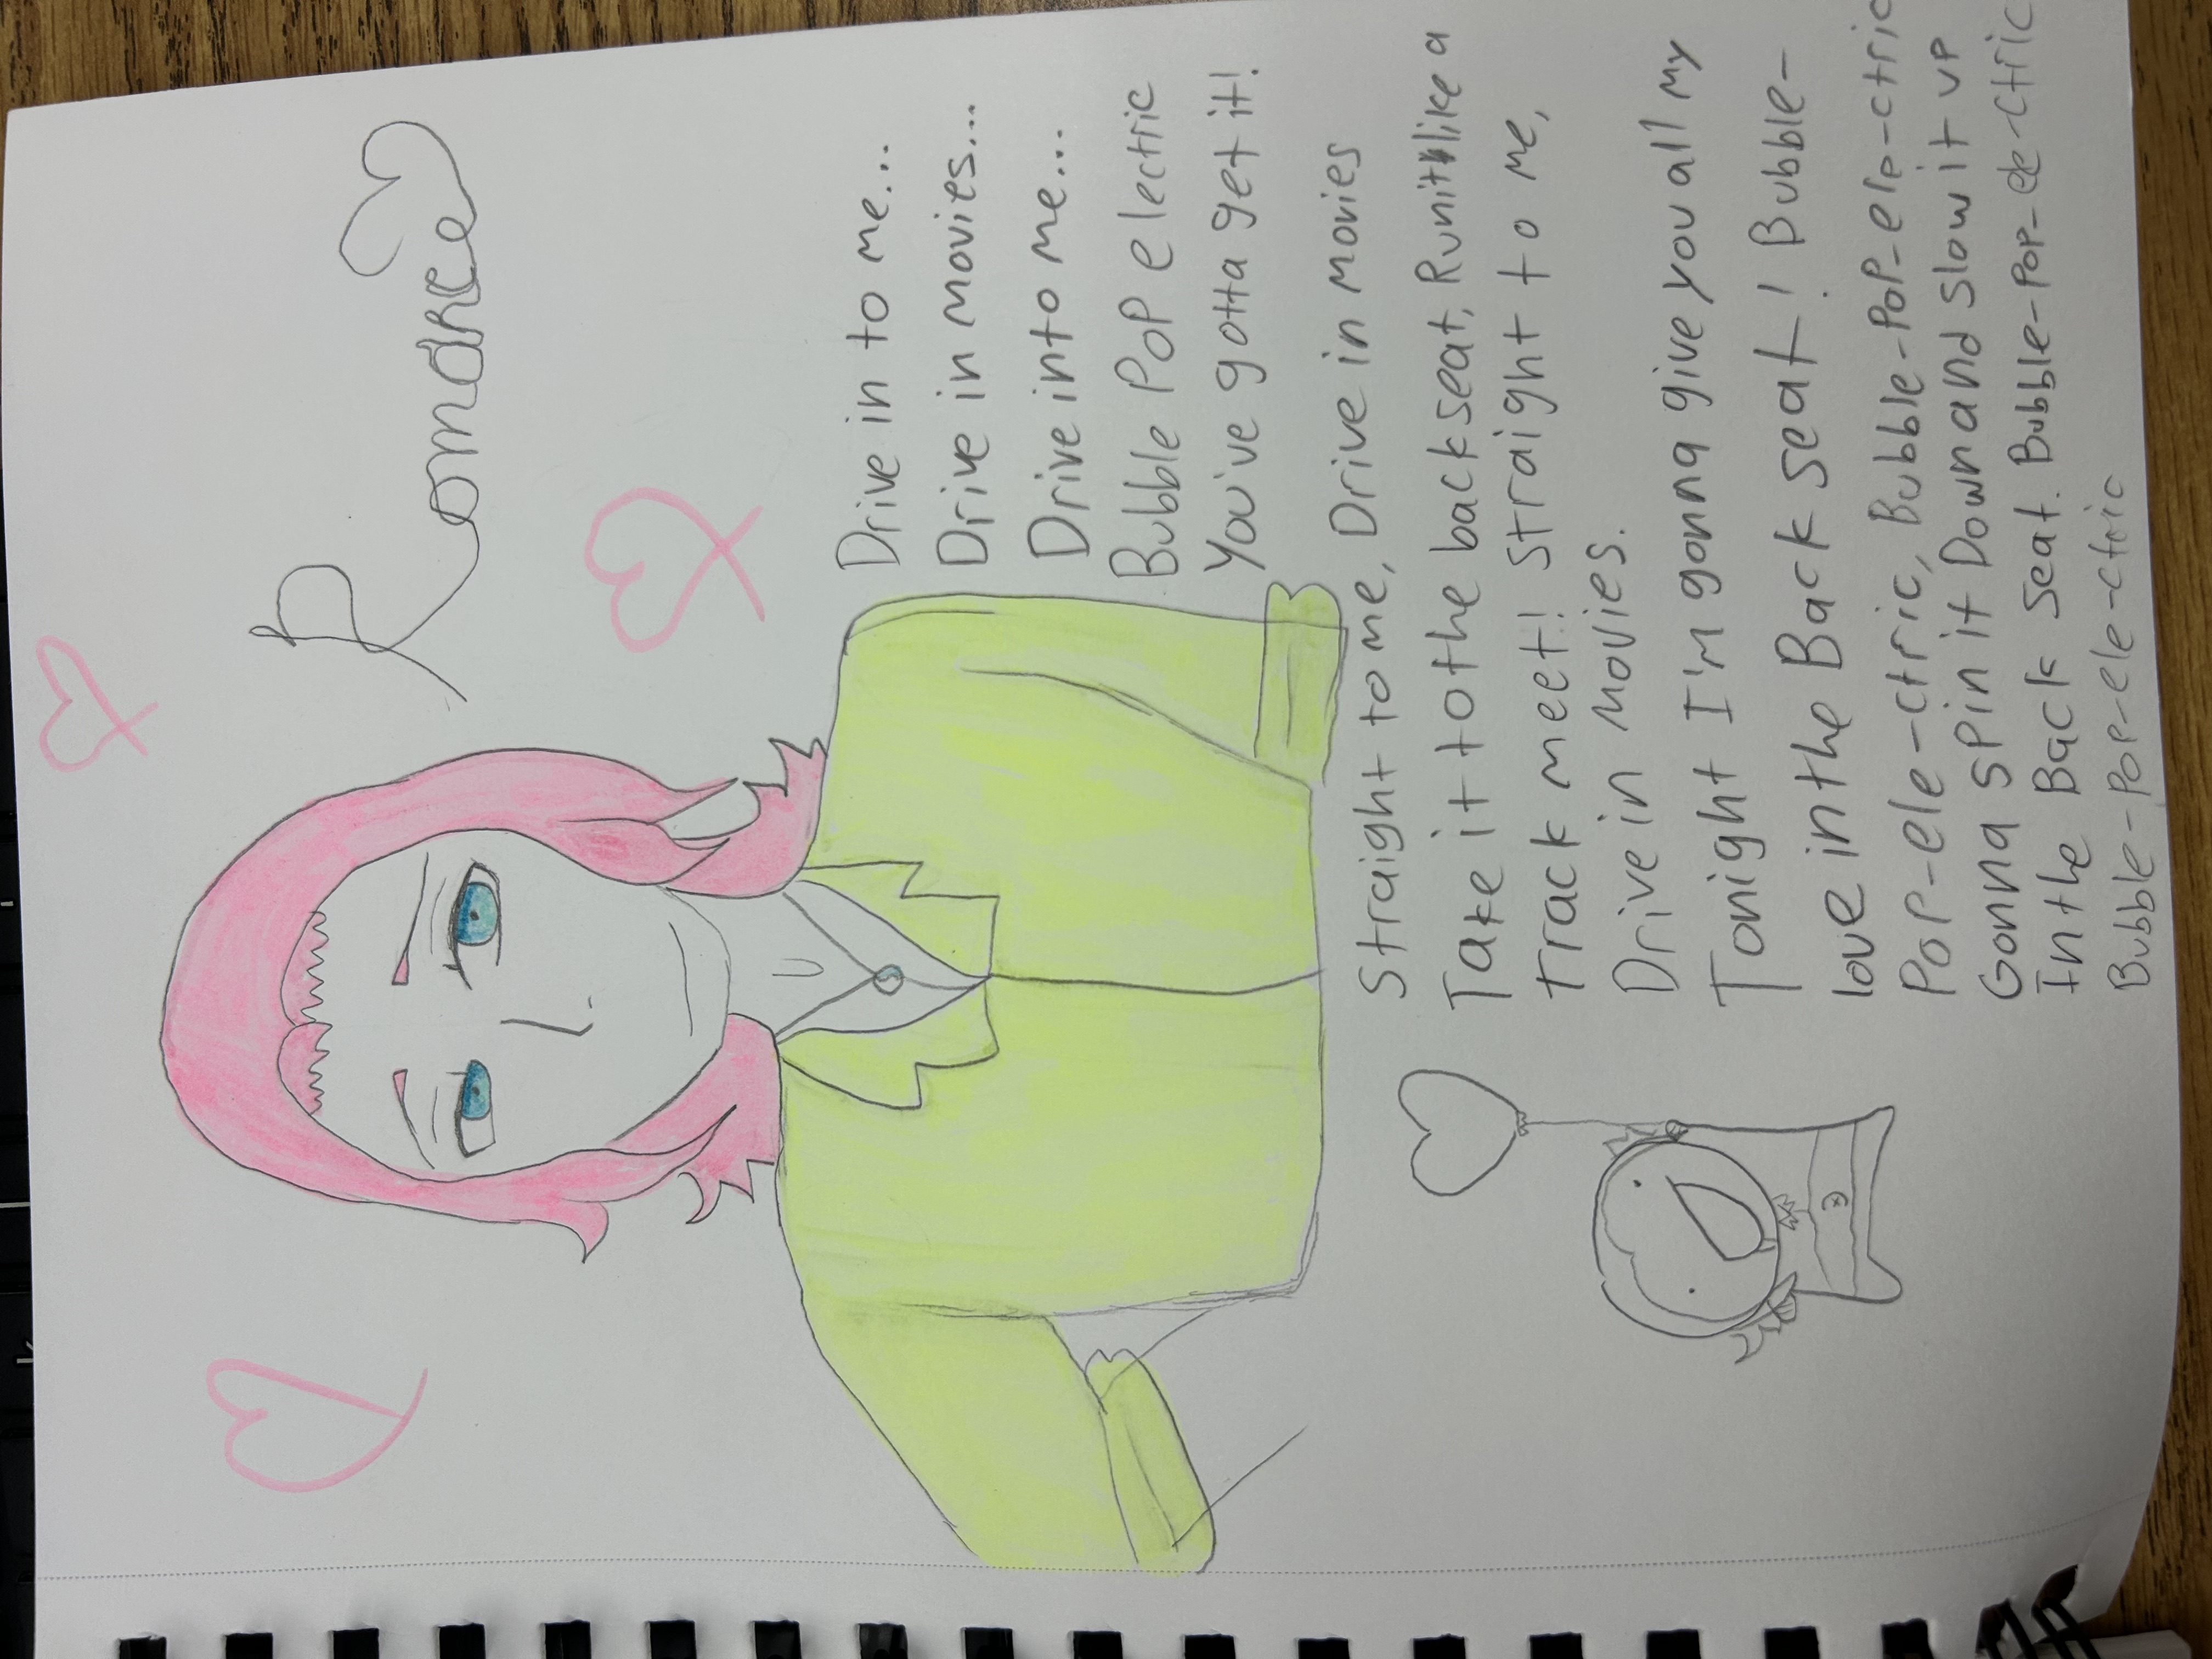 Romance
Drive in to me...
Drive in movies...
Drive into me...
Bubble Pop electric
You've gotta get it!
Straight to me, Drive in movies
Take it to the backseat, Run it like a
track meet! Straight to me,
Drive in movies.
Tonight I'm gonna give you all my
love in the Back seat! Bubble-
Pop-ele-ctric, Bubble-Pop-ele-ctric
Gonna spin it Down and slow it up
In the Back seat. Bubble-Pop-ele-ctric
Bubble-Pop-ele-ctric